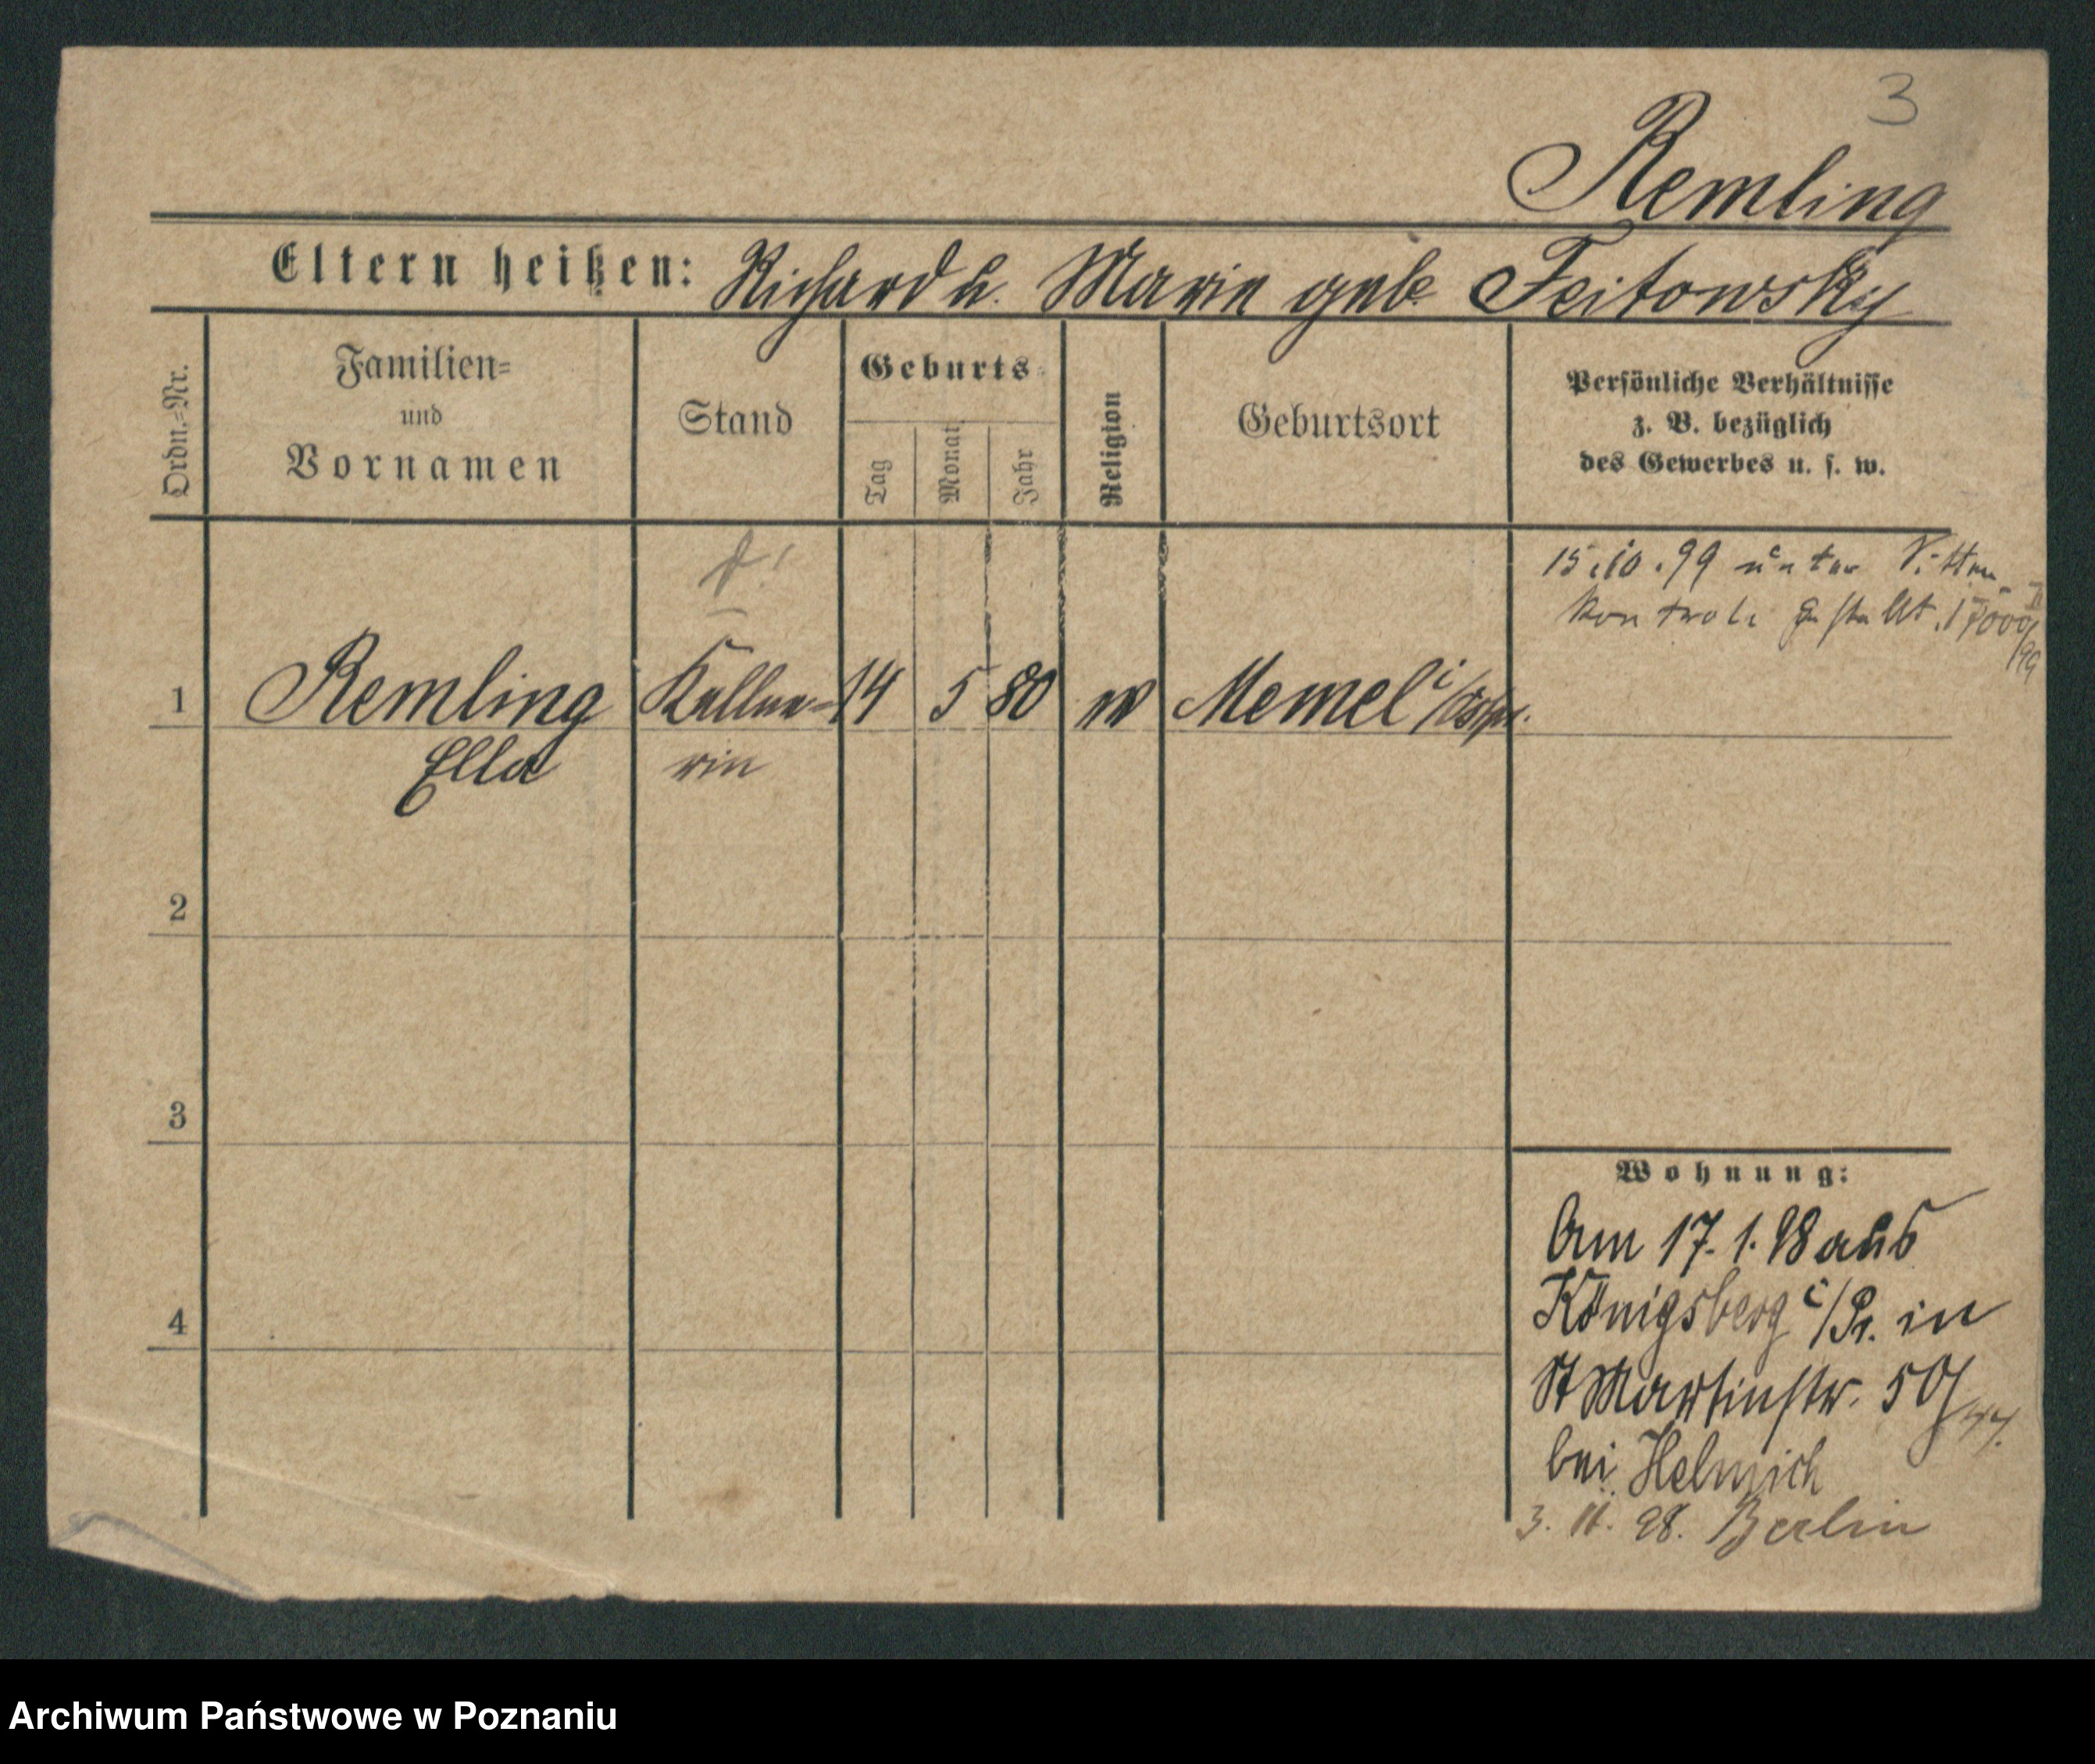 3
Remling
Eltern heißen: Richard u. Marie geb. Feitowsky
Ordn.=Nr.
Familien=
und
Vornamen
Stand
Geburts=
Tag
Monat
Jahr
Religion
Geburtsort
Persönliche Verhältnisse
z. B. bezüglich
des Gewerbes u. s. w.
15.10.99 unter Sitten
kontrole gestellt. 17000/99
1 Remling Kellne= 14 5 80 Memel i/Ostpr.
Ella rin
2
3
4
Wohnung:
Am 17. 1. 98 aus
Königsberg i/Pr. in
St Martinstr. 50/
bei Helmich
3. 11. 98. Berlin
Archiwum Państwowe w Poznaniu